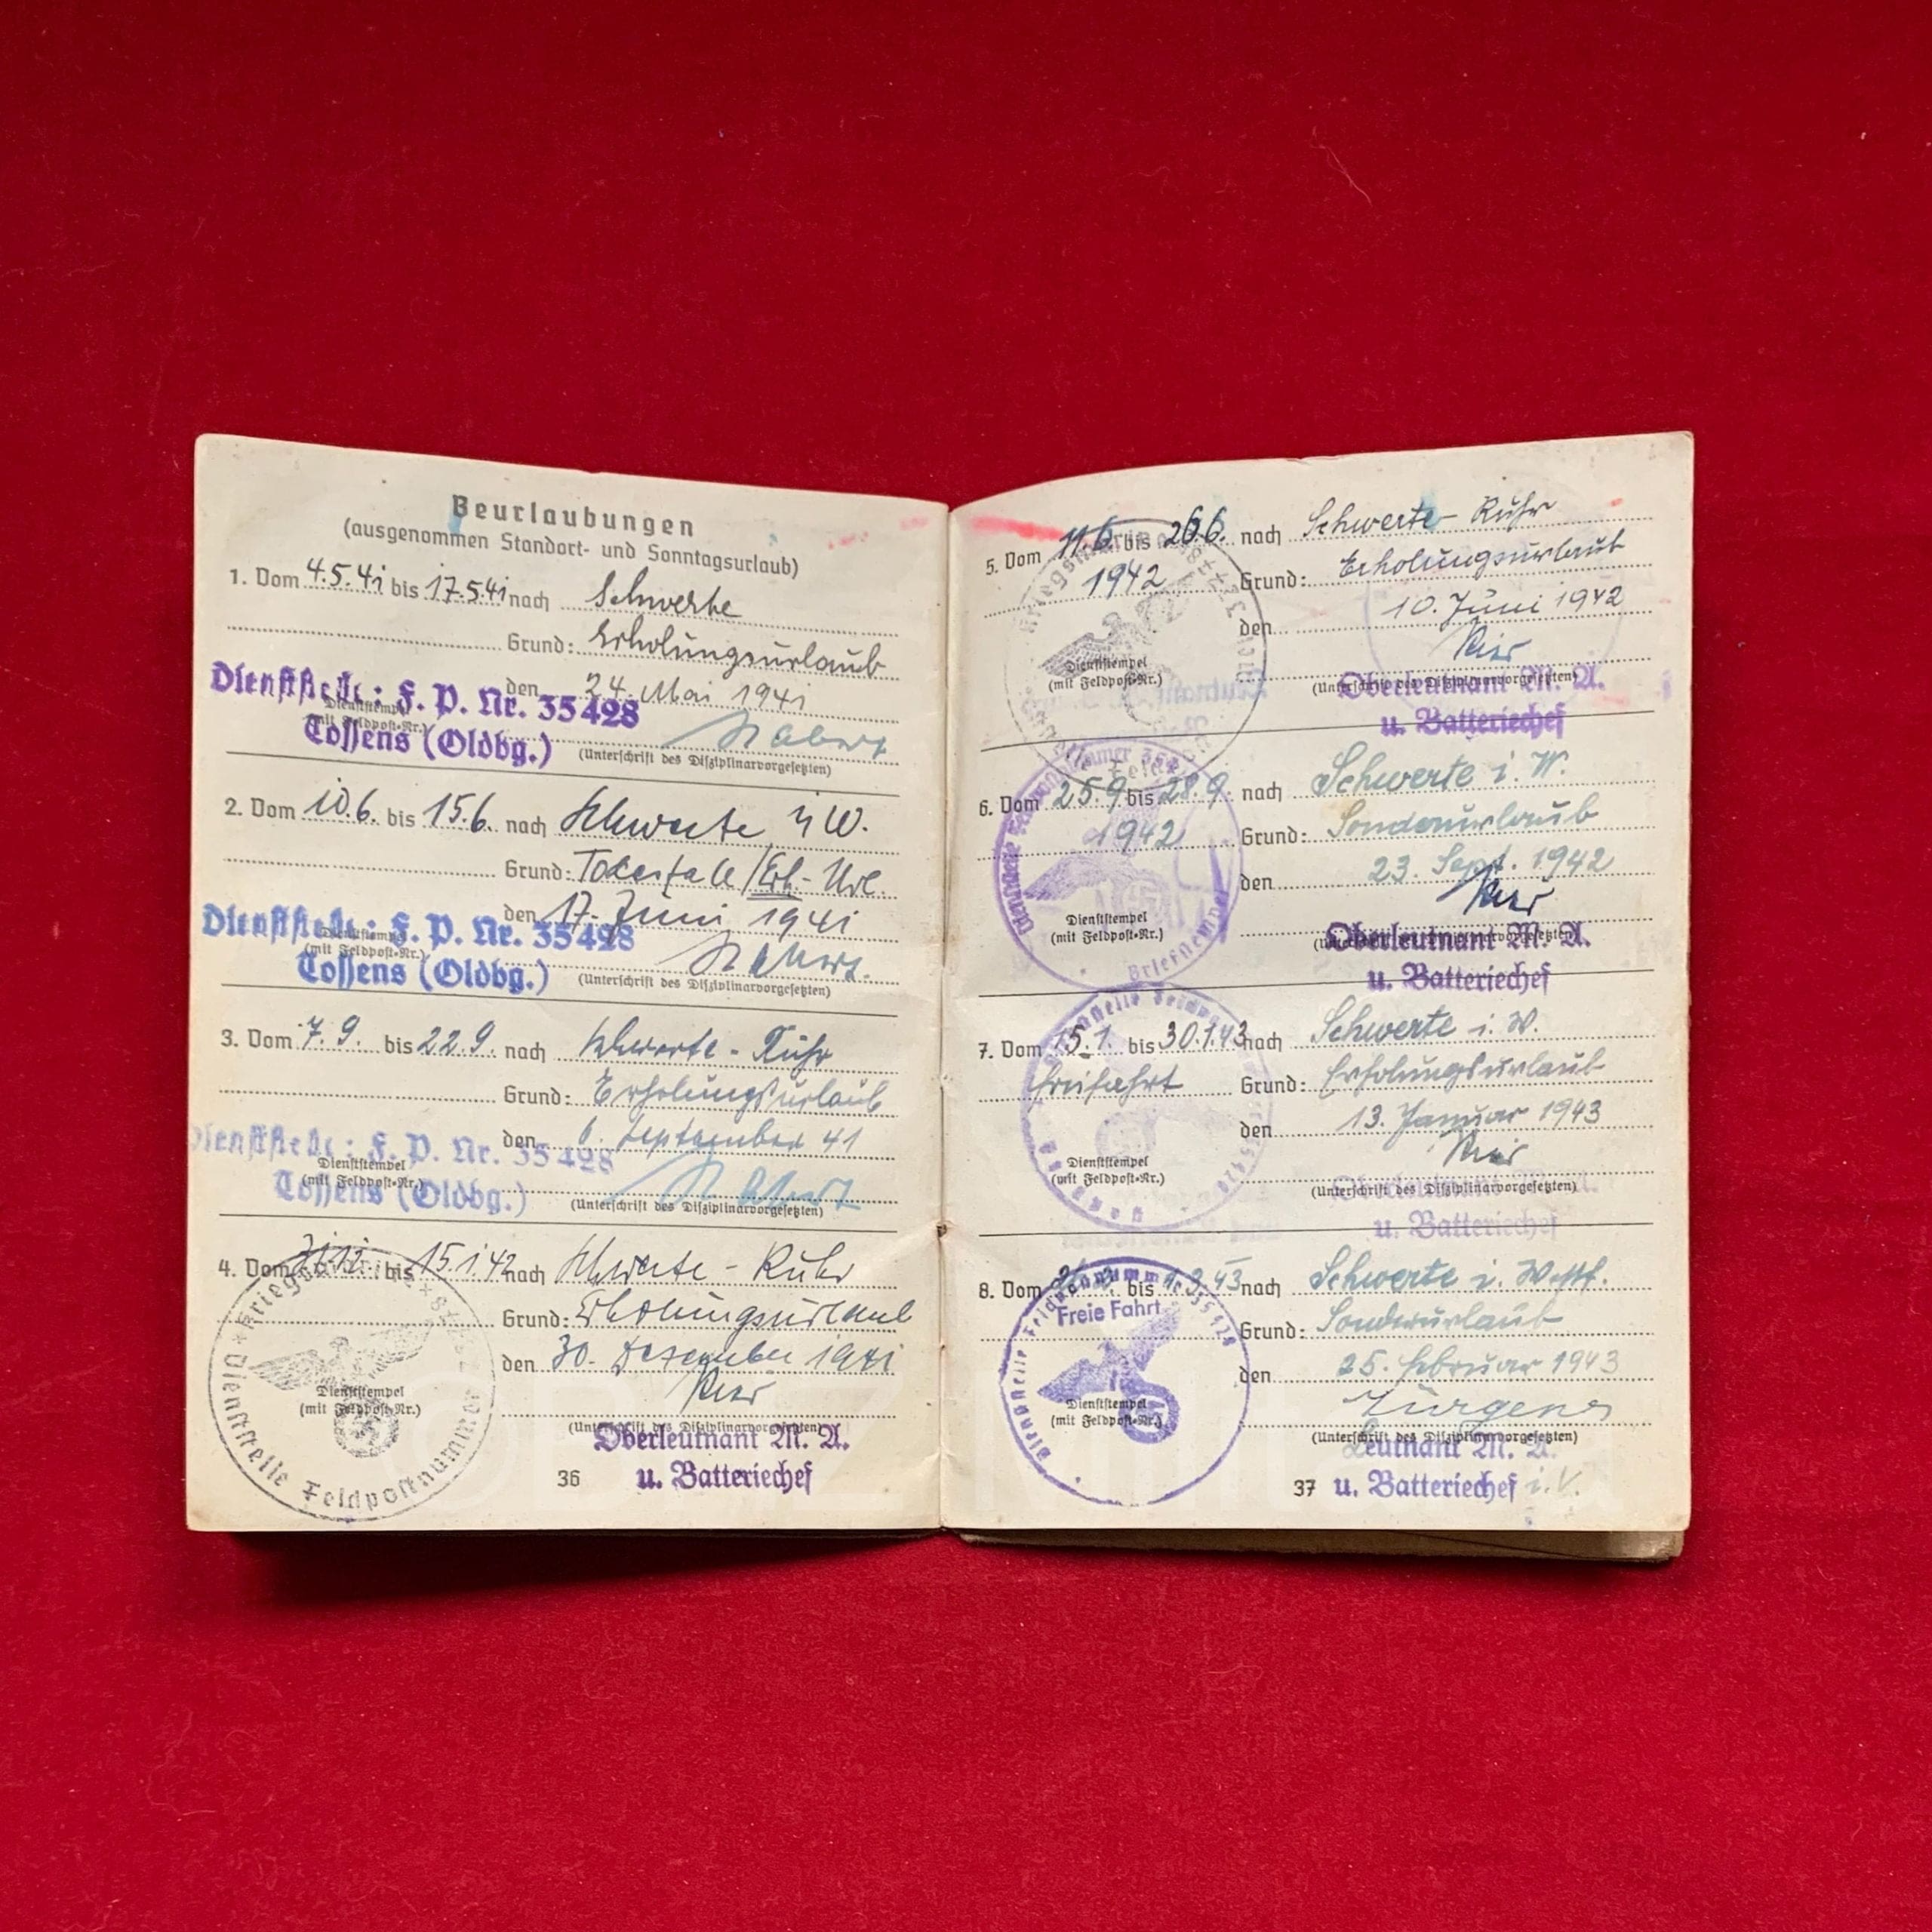 Beurlaubungen
(ausgenommen Standort- und Sonntagsurlaub)
1. Vom 4.5.41 bis 17.5.41 nach Schwerte
Grund: Erholungsurlaub
den 24. Mai 1941
Dienststelle: F. P. Nr. 35428
Tossens (Oldbg.)
Dienststempel
(mit Feldpost-Nr.)
(Unterschrift des Disziplinarvorgesetzten)
2. Vom 10.6. bis 15.6. nach Schwerte i/W.
Grund: Todesfall/Erh.-Url.
den 17. Juni 1941
Dienststelle: F. P. Nr. 35428
Tossens (Oldbg.)
Dienststempel
(mit Feldpost-Nr.)
(Unterschrift des Disziplinarvorgesetzten)
3. Vom 7.9. bis 22.9. nach Schwerte-Ruhr
Grund: Erholungsurlaub
den 6. September 41
Dienststelle: F. P. Nr. 35428
Tossens (Oldbg.)
Dienststempel
(mit Feldpost-Nr.)
(Unterschrift des Disziplinarvorgesetzten)
4. Vom 31.12. bis 15.1.42 nach Schwerte-Ruhr
Grund: Erholungsurlaub
den 30. Dezember 1941
Dienststelle Feldpostnummer
Dienststempel
(mit Feldpost-Nr.)
(Unterschrift des Disziplinarvorgesetzten)
Oberleutnant M. A.
u. Batteriechef
36
5. Vom 11.6. bis 26.6. nach Schwerte-Ruhr
1942 Grund: Erholungsurlaub
den 10. Juni 1942
Dienststempel
(mit Feldpost-Nr.)
(Unterschrift des Disziplinarvorgesetzten)
Oberleutnant M. A.
u. Batteriechef
6. Vom 25.9. bis 28.9. nach Schwerte i. W.
1942 Grund: Sonderurlaub
den 23. Sept. 1942
Briefstempel
Dienststempel
(mit Feldpost-Nr.)
(Unterschrift des Disziplinarvorgesetzten)
Oberleutnant M. A.
u. Batteriechef
7. Vom 15.1. bis 30.1.43 nach Schwerte i. W.
Freifahrt Grund: Erholungsurlaub
den 13. Januar 1943
Dienststempel
(mit Feldpost-Nr.)
(Unterschrift des Disziplinarvorgesetzten)
u. Batteriechef
8. Vom bis 1.3.43 nach Schwerte i. Westf.
Freie Fahrt Grund: Sonderurlaub
den 25. Februar 1943
Jürgens
Dienststelle Feldpostnummer 35428
Dienststempel
(mit Feldpost-Nr.)
(Unterschrift des Disziplinarvorgesetzten)
Leutnant M. A.
u. Batteriechef i. V.
37